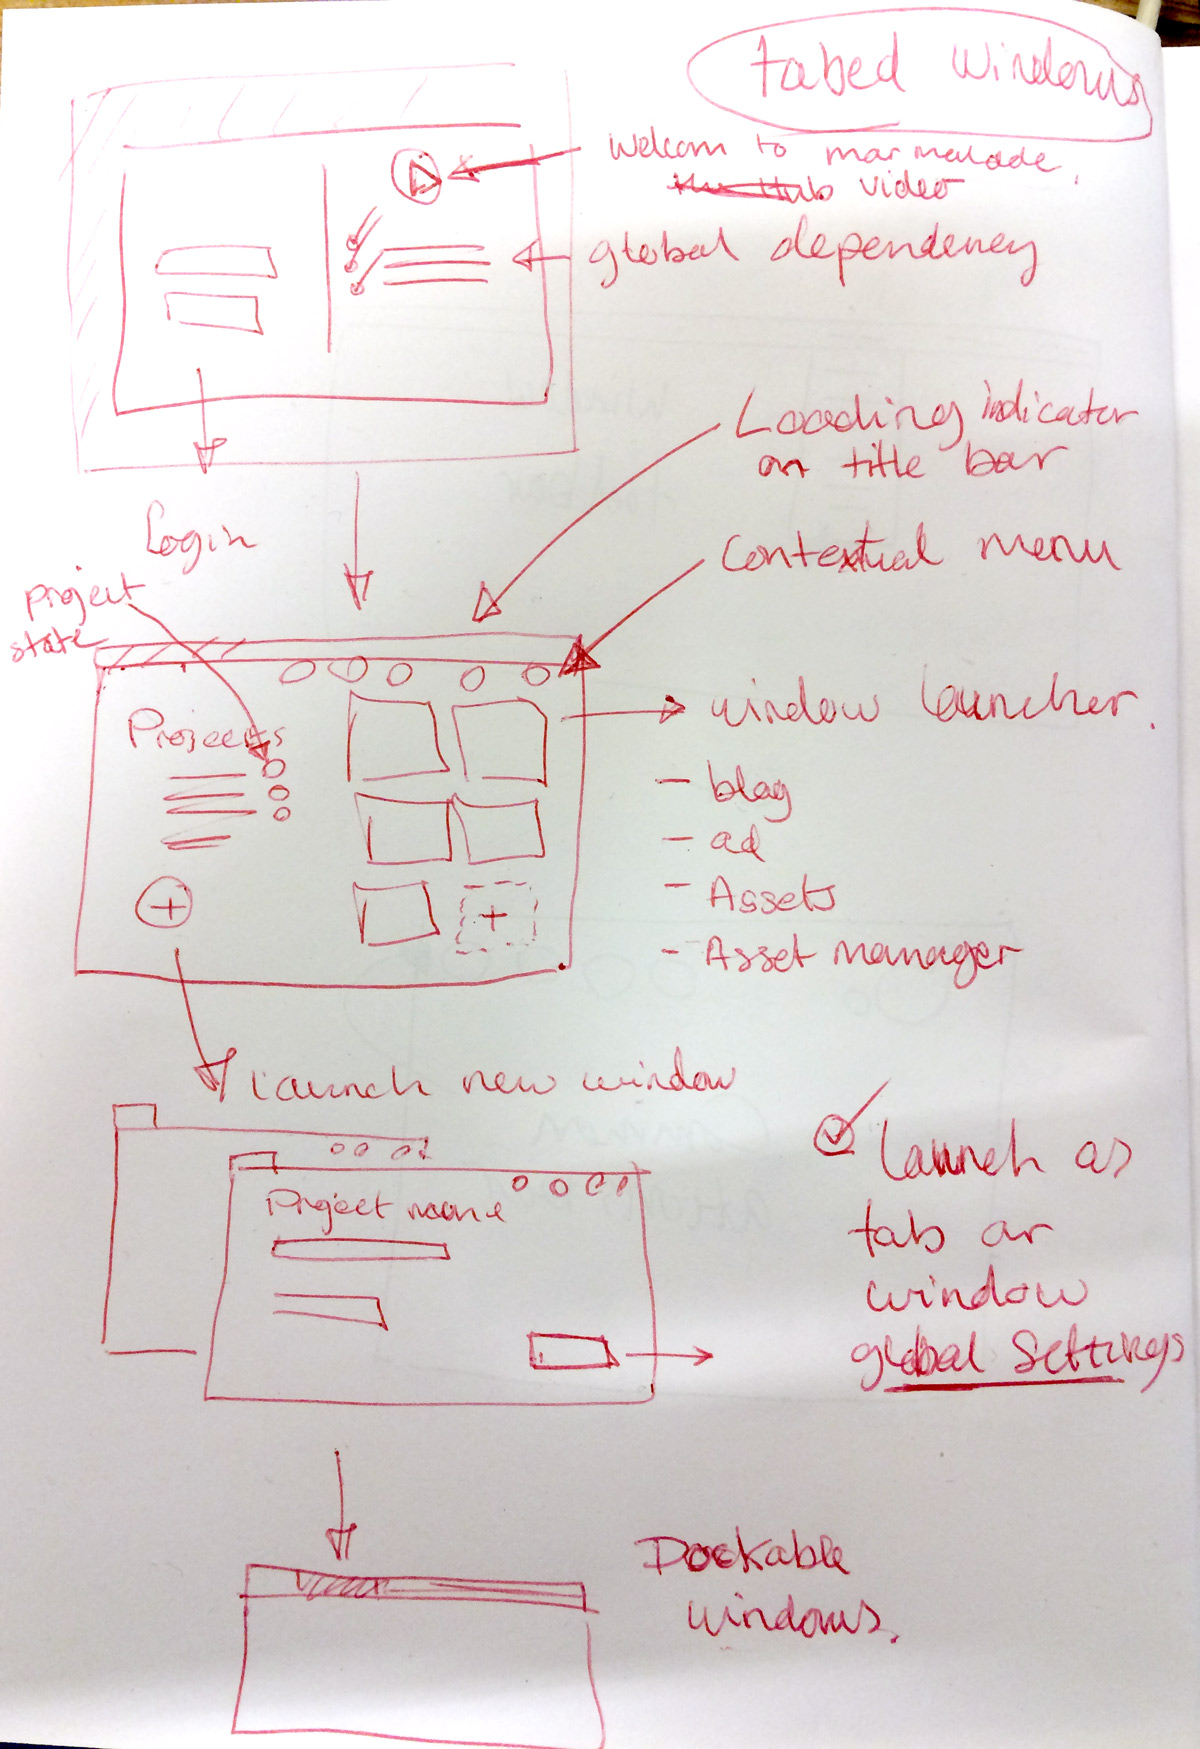 tabed windows
Welcom to marmalade.
Hub video
global dependency
Loading indicator
on title bar
Contextual menu
Login
project
state
Projects
window launcher.
- blog
- ad
- Assets
- Asset manager
Launch new window
Project name
Launch as
tab or
window
global Settings
Dockable
windows.